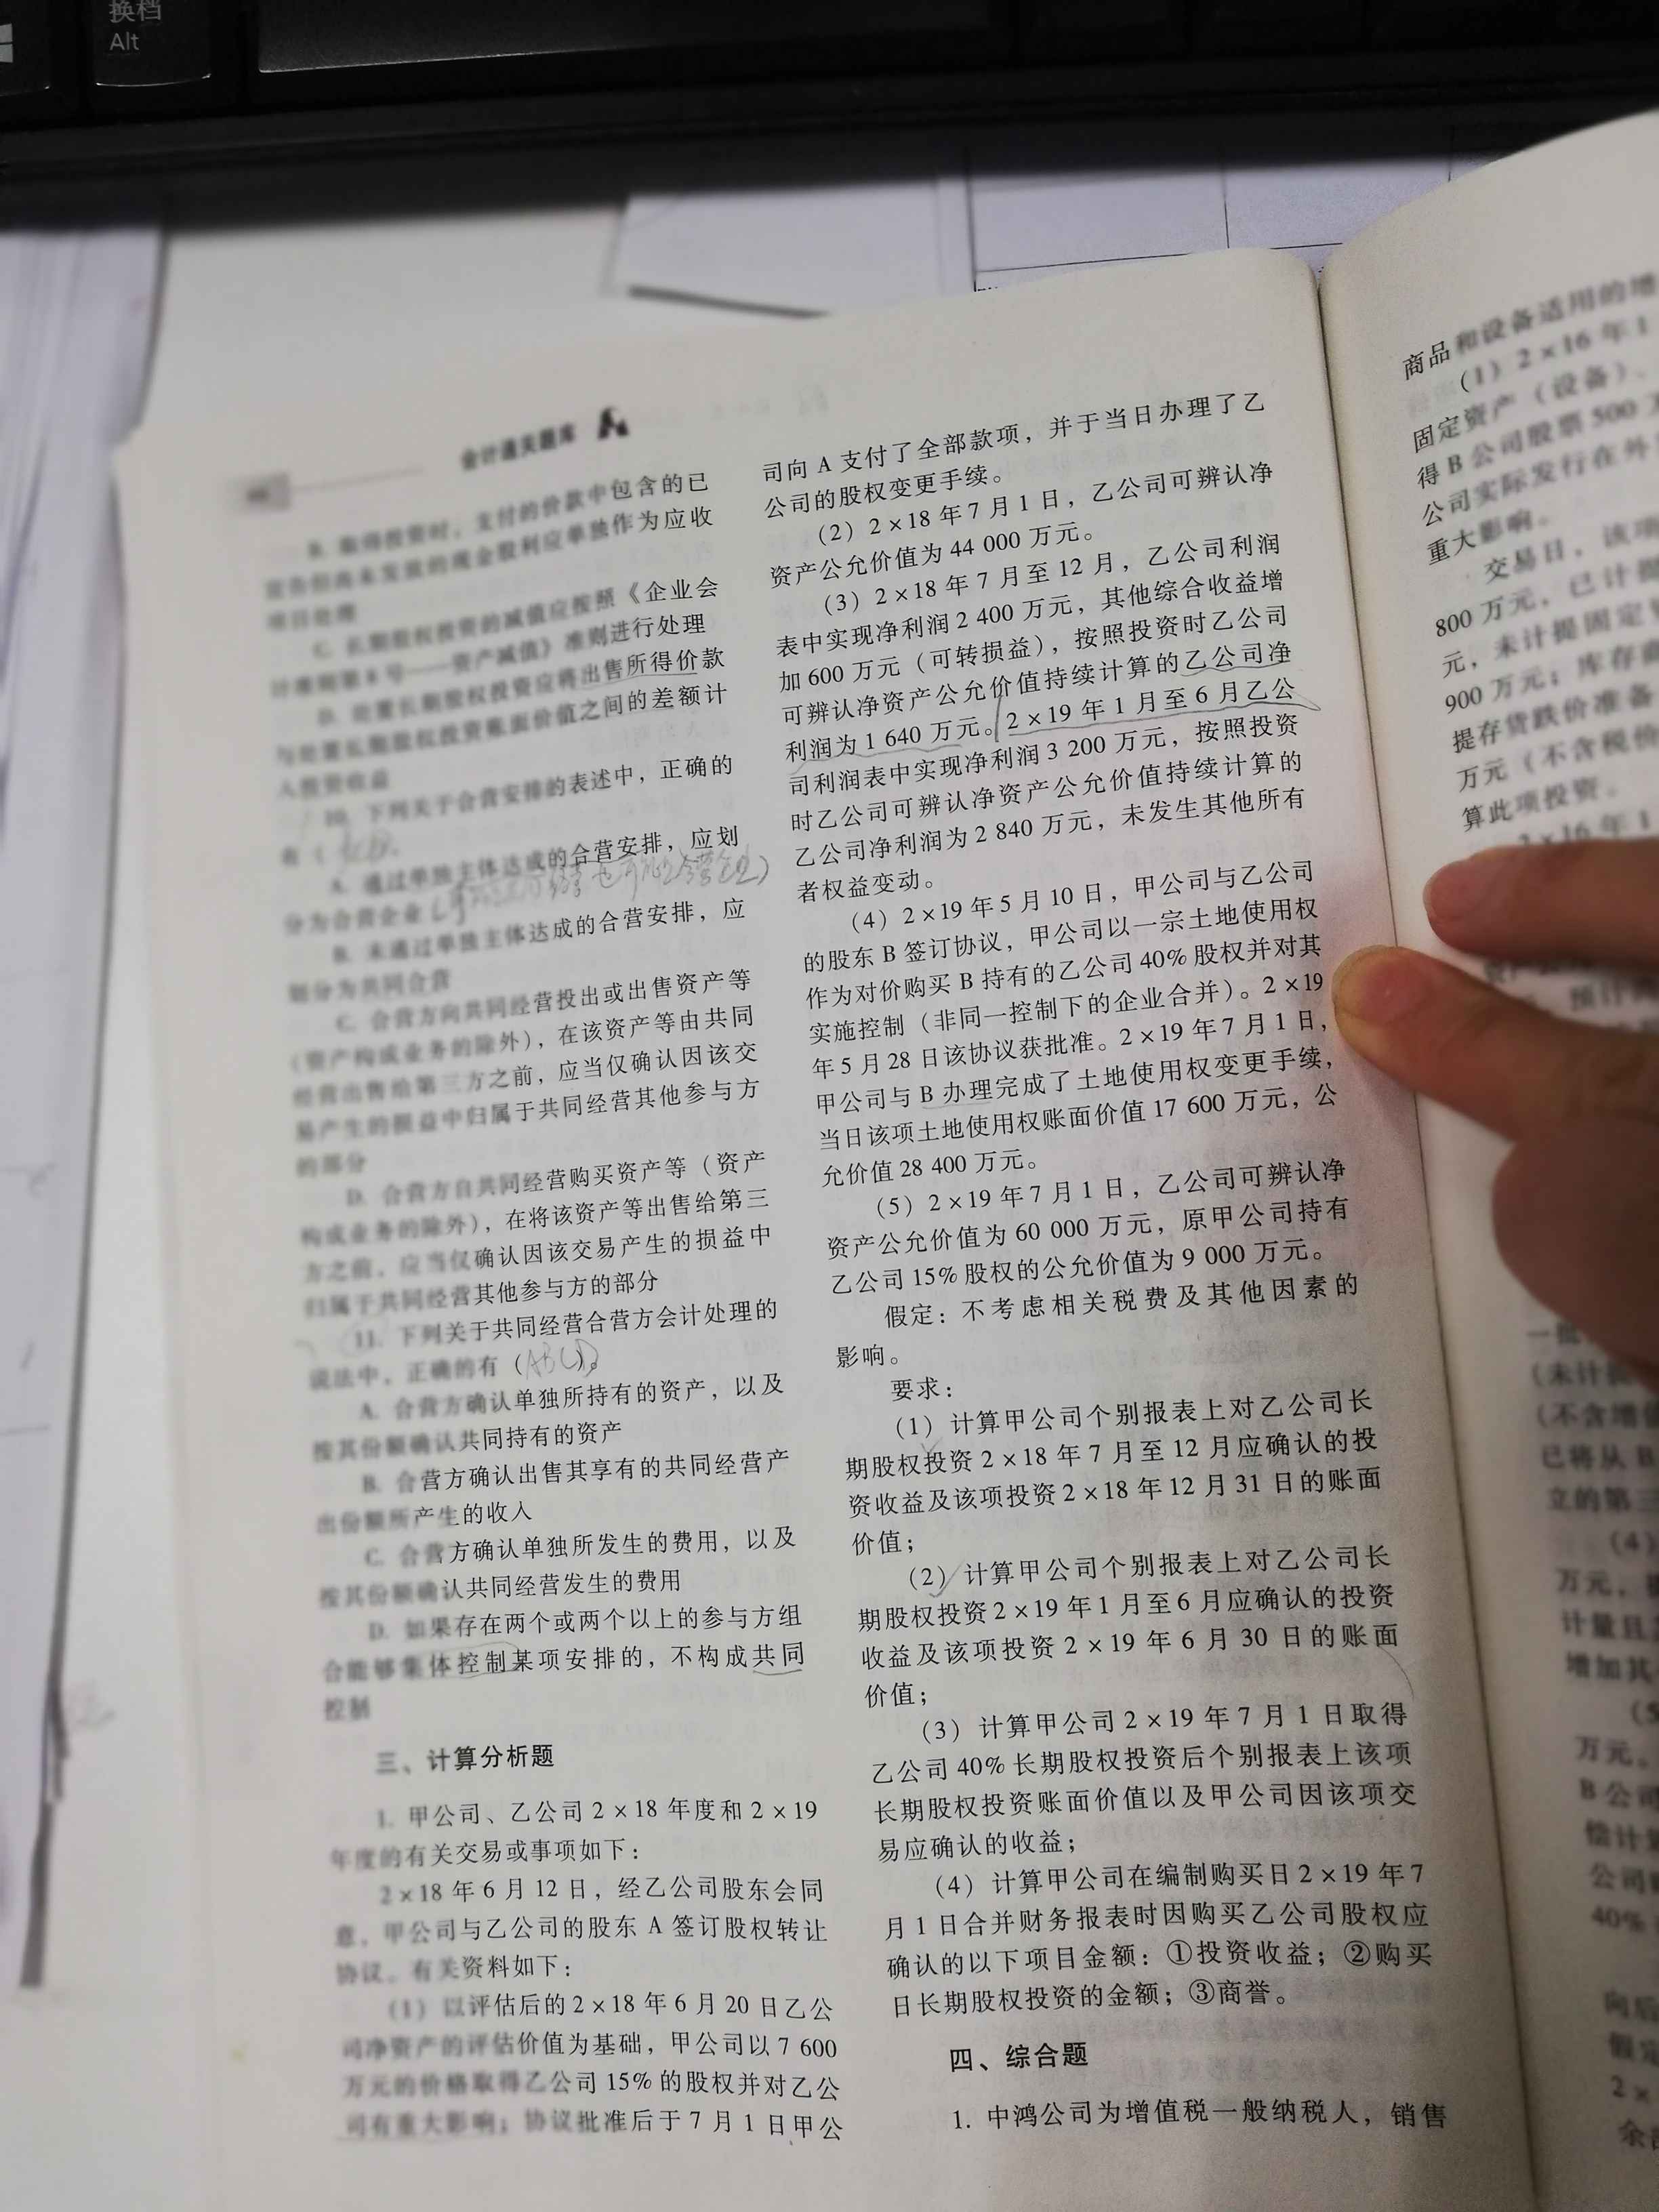 换档
Alt
会计通关题库
B. 取得投资时，支付的价款中包含的已
宣告但尚未发放的现金股利应单独作为应收
项目处理
C. 长期股权投资的减值应按照《企业会
计准则第8号——资产减值》准则进行处理
D. 处置长期股权投资应将出售所得价款
与处置长期股权投资账面价值之间的差额计
入投资收益
10. 下列关于合营安排的表述中，正确的
有（
A. 通过单独主体达成的合营安排，应划
分为合营企业
B. 未通过单独主体达成的合营安排，应
划分为共同合营
C. 合营方向共同经营投出或出售资产等
（资产构成业务的除外），在该资产等由共同
经营出售给第三方之前，应当仅确认因该交
易产生的损益中归属于共同经营其他参与方
的部分
D. 合营方自共同经营购买资产等（资产
构成业务的除外），在将该资产等出售给第三
方之前，应当仅确认因该交易产生的损益中
归属于共同经营其他参与方的部分
11. 下列关于共同经营合营方会计处理的
说法中，正确的有（ABCD）。
A. 合营方确认单独所持有的资产，以及
按其份额确认共同持有的资产
B. 合营方确认出售其享有的共同经营产
出份额所产生的收入
C. 合营方确认单独所发生的费用，以及
按其份额确认共同经营发生的费用
D. 如果存在两个或两个以上的参与方组
合能够集体控制某项安排的，不构成共同
控制
三、计算分析题
1. 甲公司、乙公司2×18年度和2×19
年度的有关交易或事项如下：
2×18年6月12日，经乙公司股东会同
意，甲公司与乙公司的股东A签订股权转让
协议。有关资料如下：
（1）以评估后的2×18年6月20日乙公
司净资产的评估价值为基础，甲公司以7 600
万元的价格取得乙公司15%的股权并对乙公
司有重大影响；协议批准后于7月1日甲公
司向A支付了全部款项，并于当日办理了乙
公司的股权变更手续。
（2）2×18年7月1日，乙公司可辨认净
资产公允价值为44 000万元。
（3）2×18年7月至12月，乙公司利润
表中实现净利润2 400万元，其他综合收益增
加600万元（可转损益），按照投资时乙公司
可辨认净资产公允价值持续计算的乙公司净
利润为1 640万元。2×19年1月至6月乙公
司利润表中实现净利润3 200万元，按照投资
时乙公司可辨认净资产公允价值持续计算的
乙公司净利润为2 840万元，未发生其他所有
者权益变动。
（4）2×19年5月10日，甲公司与乙公司
的股东B签订协议，甲公司以一宗土地使用权
作为对价购买B持有的乙公司40%股权并对其
实施控制（非同一控制下的企业合并）。2×19
年5月28日该协议获批准。2×19年7月1日，
甲公司与B办理完成了土地使用权变更手续，
当日该项土地使用权账面价值17 600万元，公
允价值28 400万元。
（5）2×19年7月1日，乙公司可辨认净
资产公允价值为60 000万元，原甲公司持有
乙公司15%股权的公允价值为9 000万元。
假定：不考虑相关税费及其他因素的
影响。
要求：
（1）计算甲公司个别报表上对乙公司长
期股权投资2×18年7月至12月应确认的投
资收益及该项投资2×18年12月31日的账面
价值；
（2）计算甲公司个别报表上对乙公司长
期股权投资2×19年1月至6月应确认的投资
收益及该项投资2×19年6月30日的账面
价值；
（3）计算甲公司2×19年7月1日取得
乙公司40%长期股权投资后个别报表上该项
长期股权投资账面价值以及甲公司因该项交
易应确认的收益；
（4）计算甲公司在编制购买日2×19年7
月1日合并财务报表时因购买乙公司股权应
确认的以下项目金额：①投资收益；②购买
日长期股权投资的金额；③商誉。
四、综合题
1. 中鸿公司为增值税一般纳税人，销售
商品和设备适用的增
（1）2×16年1
固定资产（设备）、
得B公司股票500
公司实际发行在外
重大影响。
交易日，该项
800万元，已计提
元，未计提固定
900万元；库存商
提存货跌价准备
万元（不含税价
算此项投资。
2×16年1
一批
（未计提
（不含增值
已将从B
立的第三
（4）
万元，
计量且
增加其
（5
万元。
B公司
偿计
公司
40%
向后
假定
2×